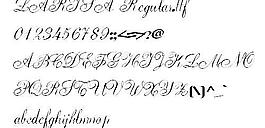 LARISA Regular.ttf
0123456789:;<=>?@
ABCDEFGHIJKLMNO
PQRSTUVWXYZ[\]^_`
abcdefghijklmnop